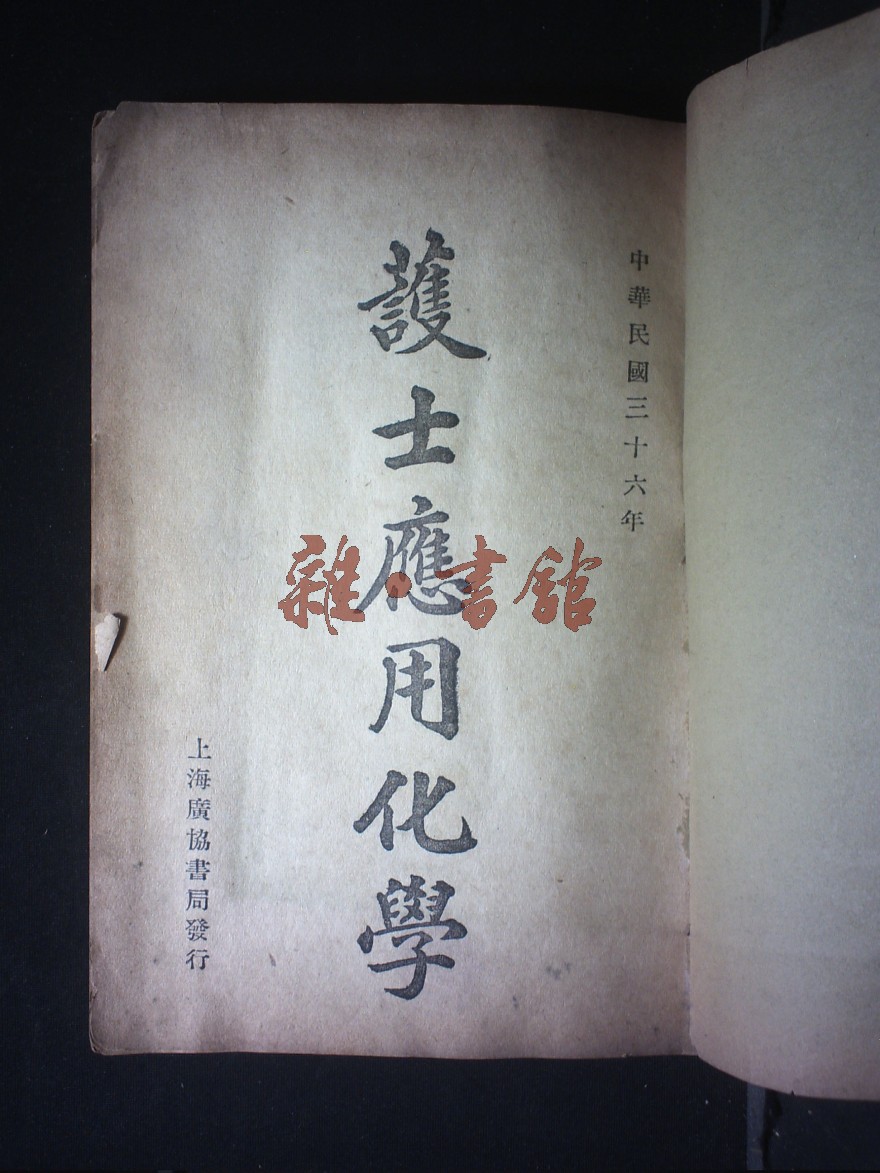 中華民國三十六年
護士應用化學
上海廣協書局發行
雜·書館